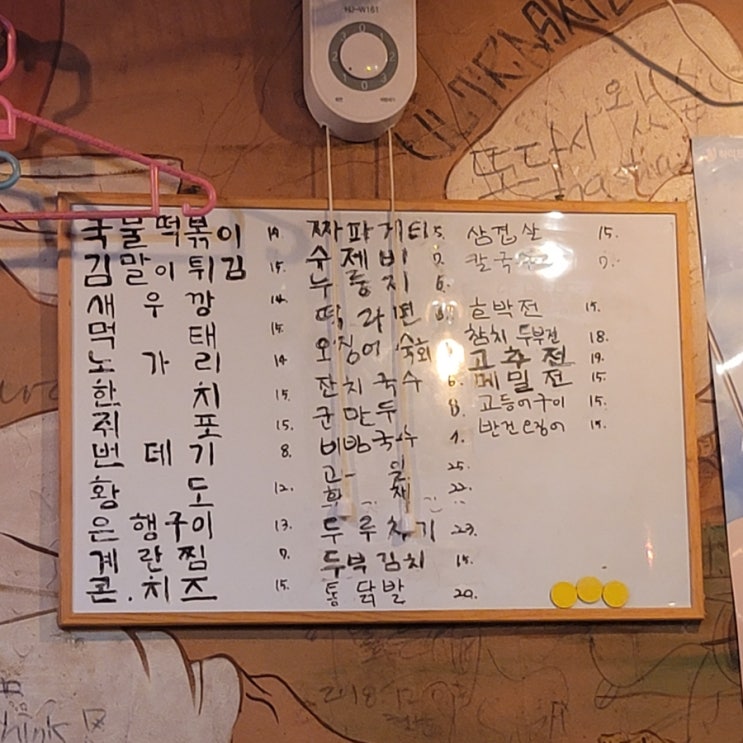 HJ-W161
또 다시
국물떡볶이 14.
김말이튀김 15.
새우깡 14.
먹태 15.
노가리 14
한치 15.
쥐포 15.
번데기 8.
황도 12.
은행구이 13.
계란찜 7.
콘.치즈 15.
짜파게티 5.
수제비 7.
누룽지 6.
떡라면
오징어숙회
잔치국수 6.
군만두 8.
비빔국수
과일 25.
화채 22.
두루치기 23.
두부김치 15.
통닭발 20.
삼겹살 15.
칼국수 7.
호박전 15.
참치두부전 18.
고추전 19.
메밀전 15.
고등어구이 15.
반건오징어 15.
2018